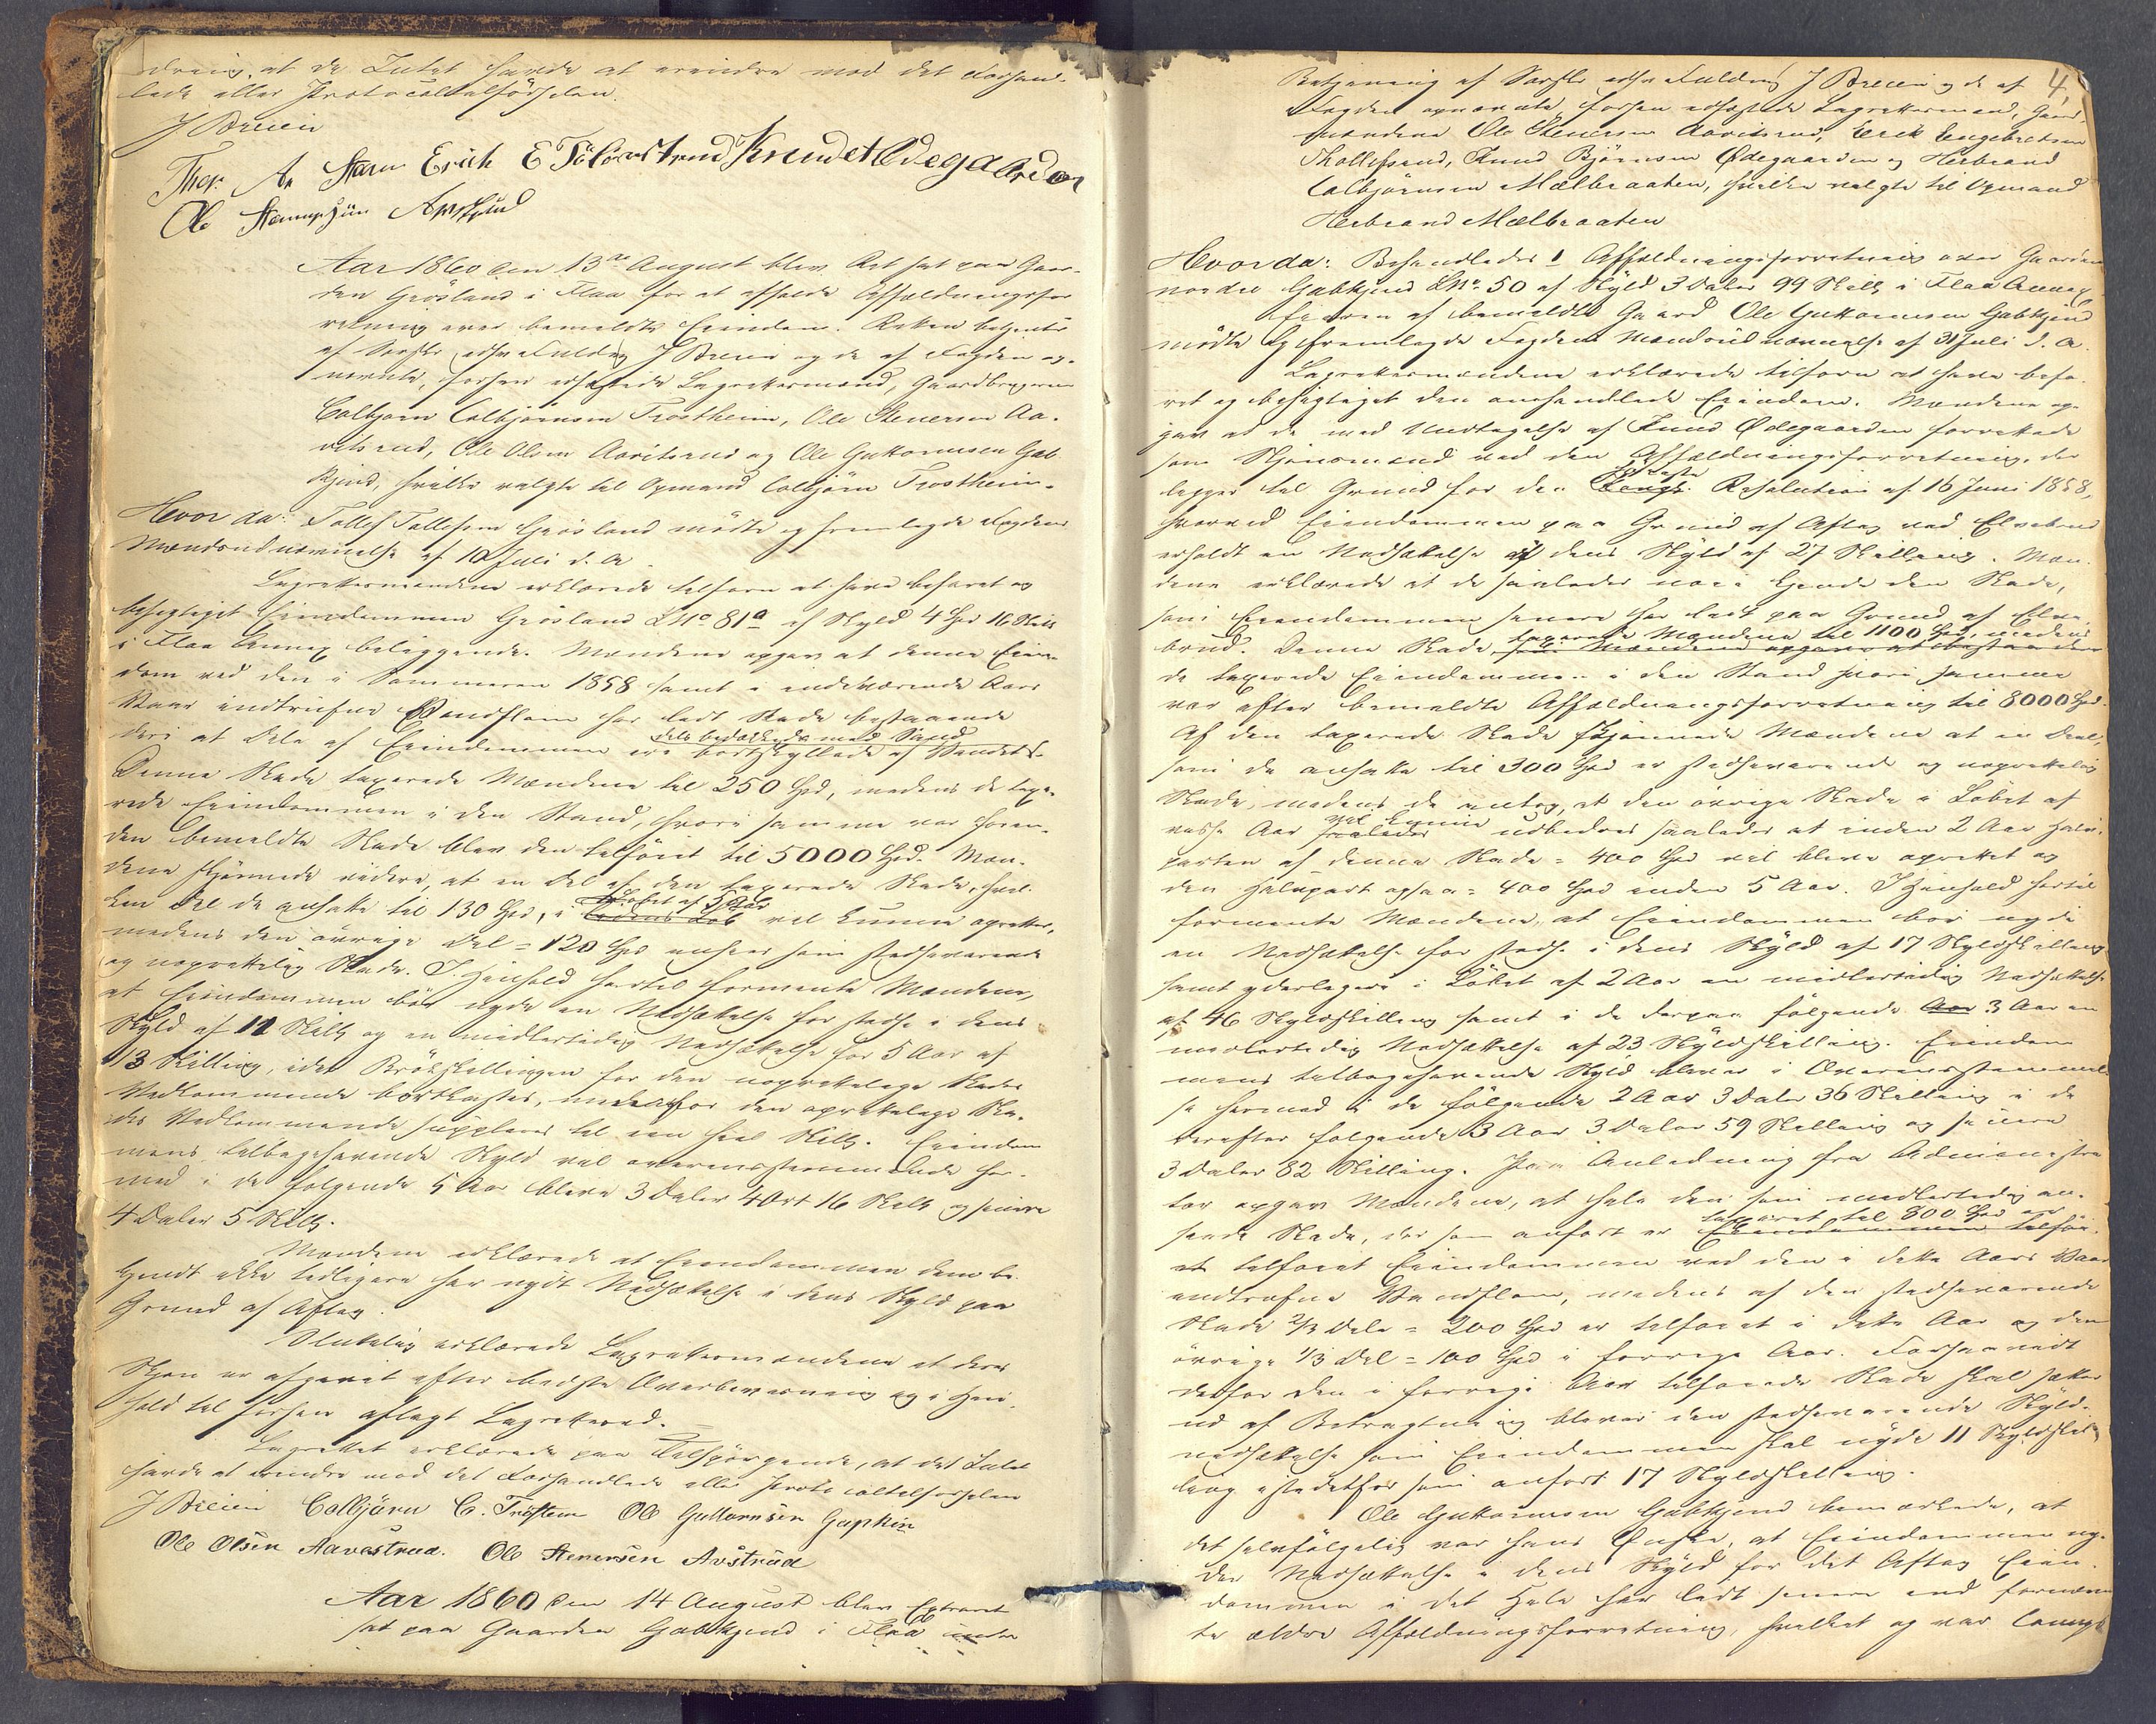 dring, at de Intet havde at erindre mod det Forhand-
lede eller Protocoltilførslen.
J Breien
Ole
Aar 1860 den 13de August blev Ret sat paa Gaar-
den Grösland i Flaa for at afholde Affældningsfor
retning over bemeldte Eiendom. Retten betjentes
af Sorskr. edsv. Fuldmg J Breien og de af Fogden op-
nævnte, forhen edfæstede Lagrettesmænd, Gaardbrugerne
Colbjørn Colbjørnsen Trostheim, Ole Stenersen Aa-
vitsrud, Ole Olsen Aavitsrud og Ole Guttormsen Gab
kjind, hvilke valgte til Opmand Colbjørn Trostheim.
Hvorda: Tollef Tollefsen Gröslund mødte og fremlagde Fogdens
Mændsudnævnelse af 10 Juli d. A.
Lagrettesmændene erklærede tilforn at have befaret og
besigtiget Eiendommen Grösland LNo 81a af Skyld 4 Spd 16 Skill
i Flaa Annex beliggende. Mændene opgav at denne Eien-
dom ved den i Sommeren 1858 samt i indeværende Aars
Vaar indtrufne Vandflom har lidt Skade bestaaende
deri at Dele af Eiendommen ere dels bedækkede med Sand bortskyllede af Vandet.
Denne Skade taxerede Mændene til 250 Spd, medens de taxe-
rede Eiendommen i den Stand, hvori samme var foren-
den bemeldte Skade blev den tilføiet til 5000 Spd. Mæn-
dene skjønnede videre, at en Del af den taxerede Skade, hvil-
ken Del de ansatte til 130 Spd, i Löbet af 5 Aar Tidens Löb vil kunne oprettes,
medens den øvrige Del = 120 Spd ansees som stedsevarende
og uoprettelig Skade. I Henhold hertil formente Mændene,
at Eiendommen bør nyde en Nedsættelse for stedse i dens
Skyld af 11 Skill og en midlertidig Nedsættelse for 5 Aar af
13 Skilling, idet Brökskillingen for den uoprettelige Skades
Vedkommende bortkastes, medens for den oprettelige Ska-
des Vedkommende suppleres til een heel Skill. Eiendom
mens tilbagehavende Skyld vil overensstemmende her-
med i de følgende 5 Aar blive 3 Daler 4 Ort 16 Skill og senere
4 Daler 5 Skill.
Mændene erklærede at Eiendommen dem be-
kjendt ikke tidligere har nydt Nedsættelse i dens Skyld paa
Grund af Aftag.
Sluttelig erklærede Lagrettesmændene at deres
Skjøn er afgivet efter bedste Overbeviisning og i Hen-
hold til forhen aflagt Lagrettesed.
Lagrettet erklærede paa Tilspørgende, at det Intet
havde at erindre mod det Forhandlede eller Protocoltilførslen
J Breien Colbjörn C. Tröstem Ole Guttormsen Gapkin
Ole Olsen Aavestrud. Ole Stenersen Avstrud
Aar 1860 den 14 August blev Extraret
sat paa Gaarden Gabkjend i Flaa under
4
Betjening af Sorskr. edsv. Fuldmg J Breien og de af
Fogden opnævnte, forhen edfæstede Lagrettesmænd, Gaard
mændene Ole Stenersen Aavitsrud, Erik Engebretsen
Thollefsrud, Knud Bjørnsen Ødegaarden og Herbrand
Colbjørnsen Mælbraaten, hvilke valgte til Opmand
Herbrand Mælbraaten
Hvorda: Behandledes 1 Affældningsforretning over Gaarden
nordre Gabkjend LNo 50 af Skyld 3 Daler 99 Skill i Flaa Annex
Eieren af bemeldte Gaard Ole Guttormsen Gabkjend
mødte og fremlagde Fogdens Mændsudnævnelse af 31 Juli d. A.
Lagrettesmændene erklærede tilforn at have befa-
ret og besigtiget den omhandlede Eiendom. Mændene op-
gav at de med Undtagelse af Knud Ødegaarden forrettede
som Skjønsmænd ved den Affældningsforretning, der
ligger til Grund for den Resolution af 16 Juni 1858,
hvorved Eiendommen paa Grund af Aftag ved Elvebrud
erholdt en Nedsættelse af dens Skyld af 27 Skilling. Mæn-
dene erklærede at de saaledes nøie kjende den Skade,
som Eiendommen senere har lidt paa Grund af Elve-
brud. Denne Skade taxerede Mændene til 1100 Spd, medens
de taxerede Eiendommen i den Stand hvori samme
var efter bemeldte Affældningsforretning til 8000 Spd.
Af den taxerede Skade skjønnede Mændene at en Deel,
som de ansatte til 300 Spd er stedsevarende og uoprettelig
Skade, medens de antog, at den øvrige Skade i Löbet af
nogle Aar vil kunne udbedres saaledes at inden 2 Aar Halv-
parten af denne Skade = 400 Spd vil blive oprettet og
den Halvpart ogsaa = 400 Spd inden 5 Aar. I Henhold hertil
formente Mændene, at Eiendommen bør nyde
en Nedsættelse for stedse i dens Skyld af 17 Skyldskilling
samt yderligere i Löbet af 2 Aar en midlertidig Nedsættelse
af 46 Skyldskilling samt i de derpaa følgende Aar 3 Aar en
midlertidig Nedsættelse af 23 Skyldskilling. Eiendom
mens tilbagehavende Skyld bliver i Overensstemmel-
se hermed i de følgende 2 Aar 3 Daler 36 Skilling i de
derefter følgende 3 Aar 3 Daler 59 Skilling og senere
3 Daler 82 Skilling. Paa Anledning fra Administra
tor opgav Mændene, at hele den som midlertidig an-
seede Skade, der som anført er taxeret til 800 Spd er
tilføiet Eiendommen ved den i dette Aars Vaar
indtrufne Vandflom, medens af den stedsevarende
Skade 2/3 Dele = 200 Spd er tilføiet i dette Aar og den
øvrige 1/3 Del = 100 Spd i forrige Aar. Forsaavidt
derfor den i forrige Aar tilføiede Skade skal sættes
ud af Betragtning bliver den stedsevarende Skyld-
nedsættelse som Eiendommen skal nyde 11 Skyldskil-
ling istedetfor som anført 17 Skyldskilling.
Ole Guttormsen Gabkjend bemærkede, at
det selvfølgelig var hans Ønske, at Eiendommen ny-
der Nedsættelse i dens Skyld for det Aftag Eien-
dommen i det Hele har lidt senere end formeen
te ældre Affældningsforretning, hvilket og var